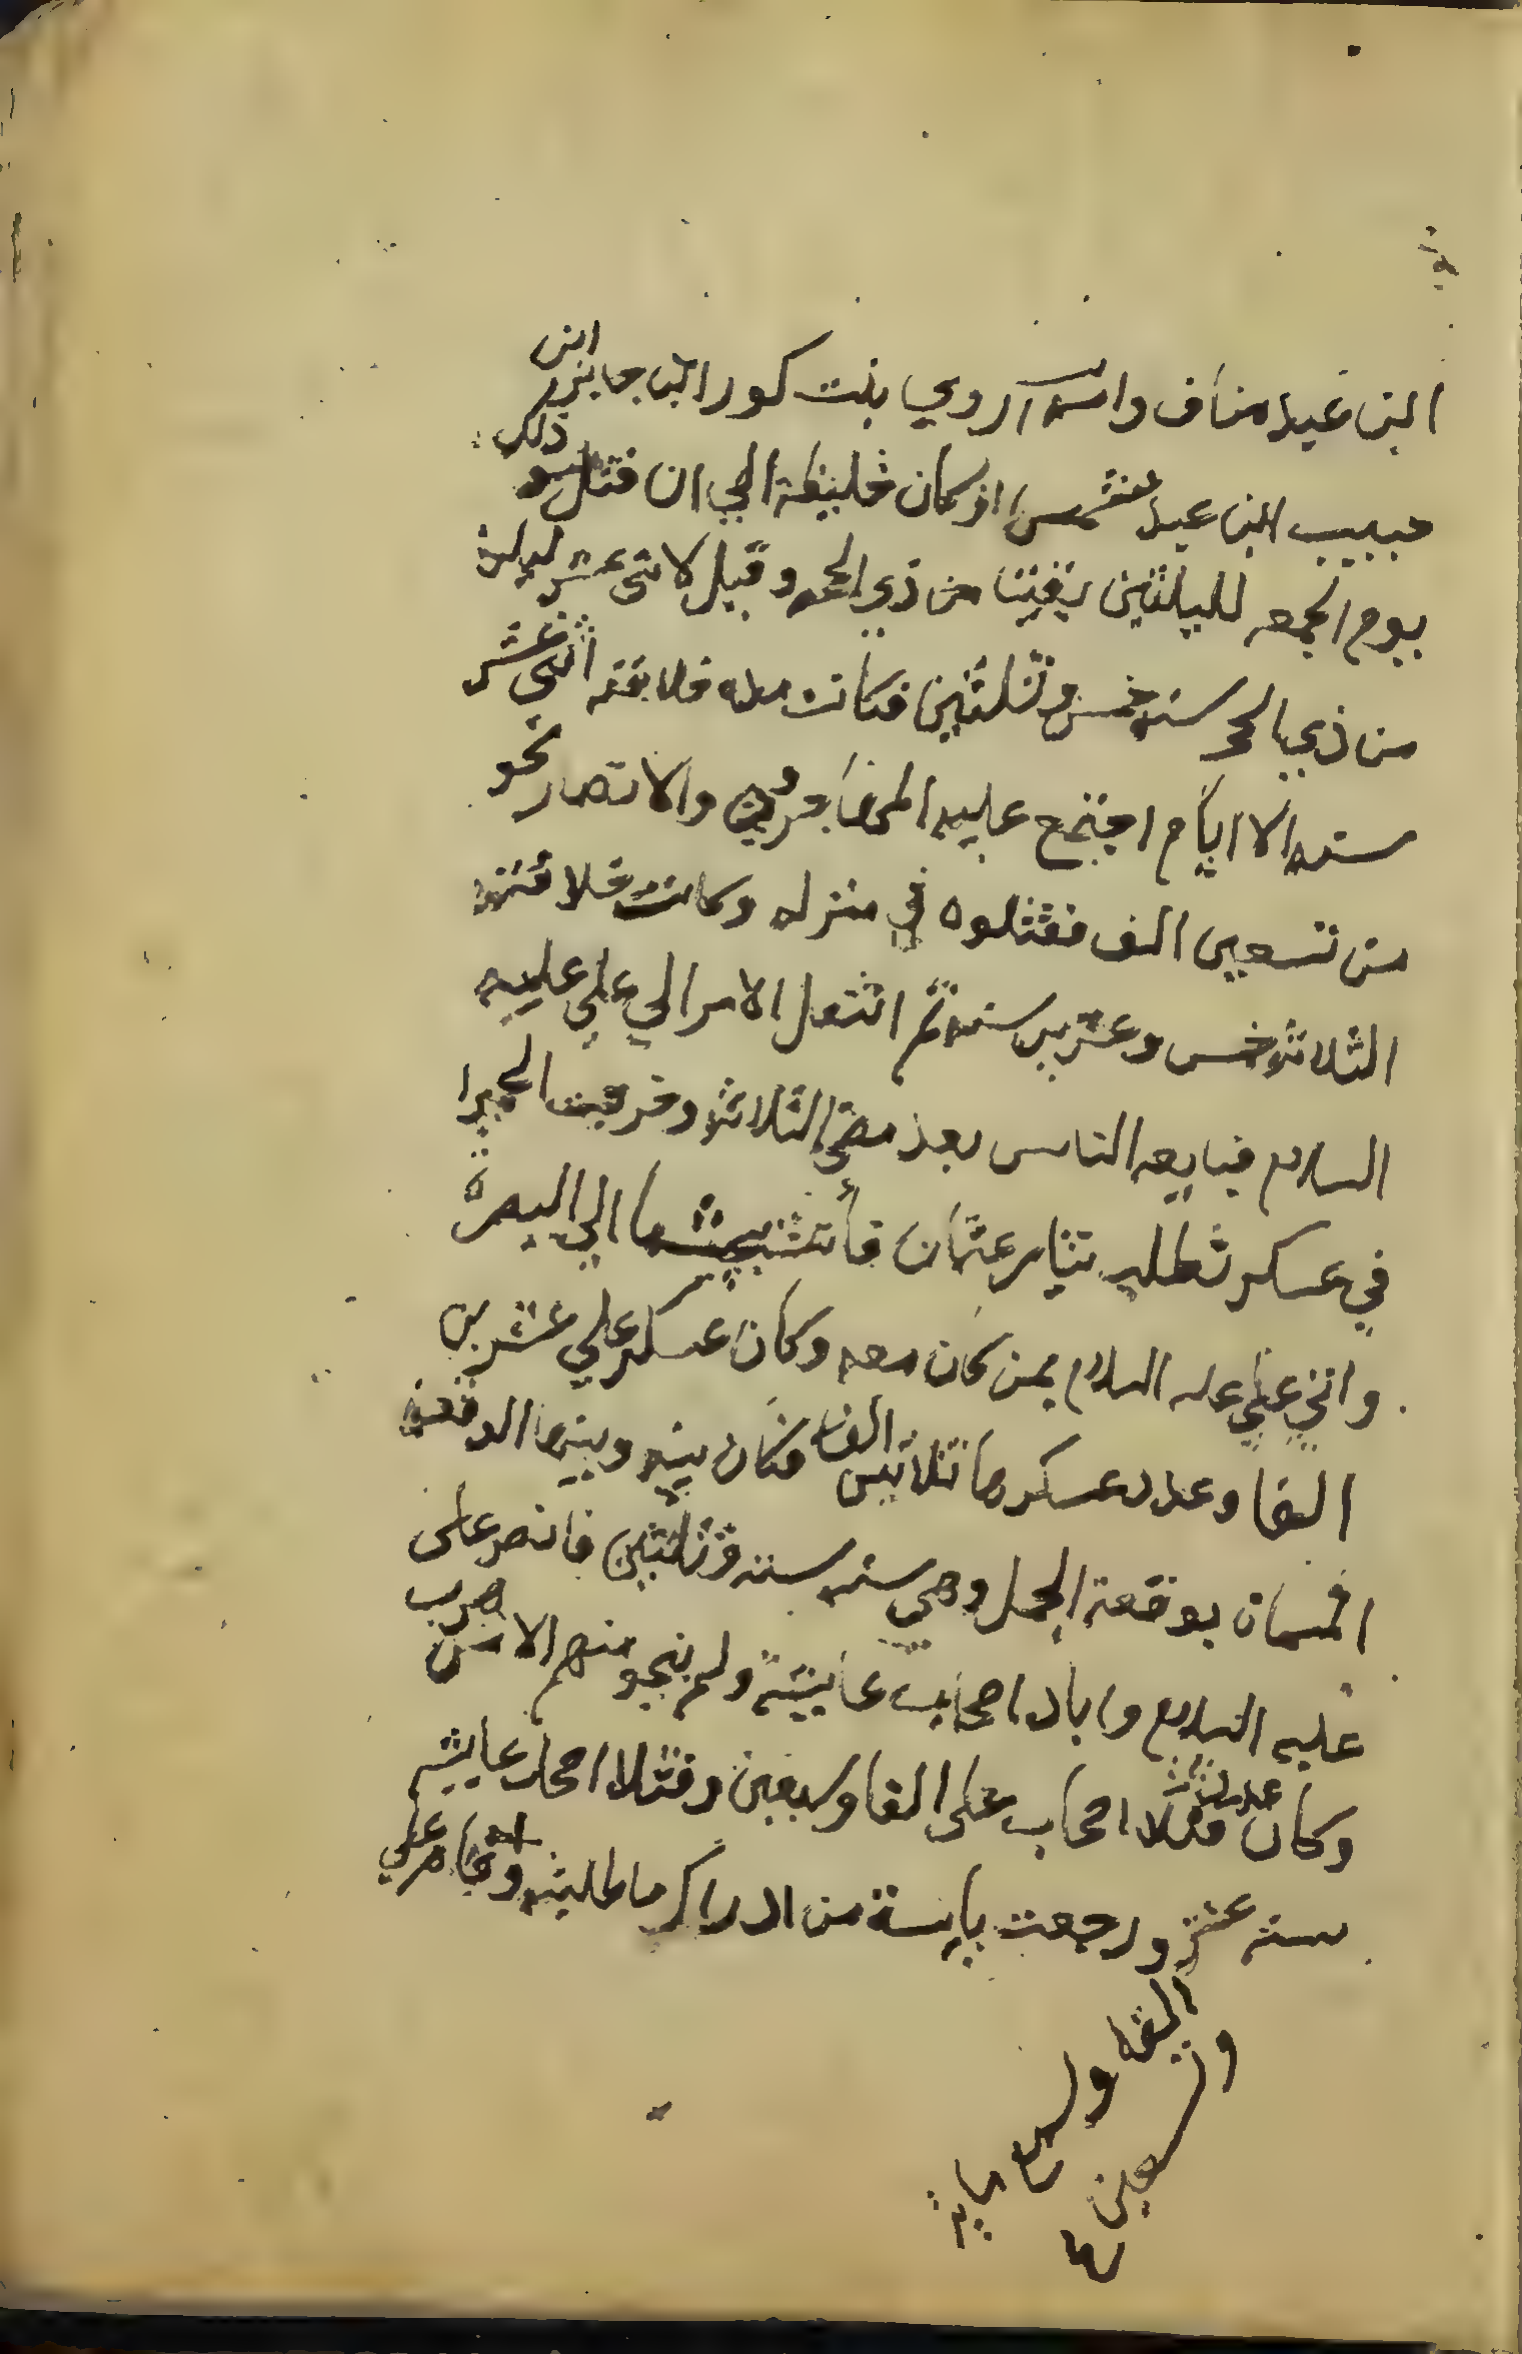 ابن عبد مناف وامه اروي بنت كور ابن جابر ابن
حبيب ابن عبد شمس اذ كان خليفة الي ان قتل
يوم الجمعه لليلتين بقيتا من ذي الحجه وقيل لاثني عشر ليله
من ذي الحجه سنه خمس وثلثين فكانت مده خلافته اثني عشر
سنه الا ايام اجتمع عليه المهاجرون والانصار نحو
من تسعين الف فقتلوه في منزله وكانت خلافته
الثلاثة خمس وعشرين سنه ثم انتقل الامر الي علي عليه
السلام فبايعه الناس بعد مضي الثلاثة وخرجت الحميرا
في عسكر تطلب بثار عثمان الي البصرة
واتي علي عليه السلام بمن كان معه وكان عسكر علي عشرين
الفا وعدد عسكرها ثلاثين الفا فكان بينه وبينها الوقعة
المسماة بوقعة الجمل وهي سنه سته وثلثين فانصر علي
عليه السلام واباد اصحاب عايشة ولم ينجو منهم الا من هرب
وكان عدد قتلا اصحاب علي الفا وسبعين وقتلا اصحاب عايشه
سته عشر ورجعت يايسة من ادراك ما طلبته واقام علي
الفا وسبع ماية
وتسعين